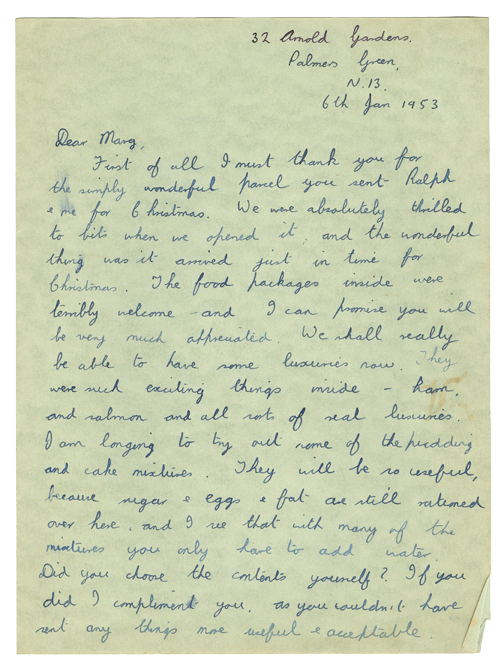 32 Arnold Gardens.
Palmers Green,
N.13.
6th Jan 1953
Dear Marg,
First of all I must thank you for
the simply wonderful parcel you sent Ralph
& me for Christmas. We were absolutely thrilled
to bits when we opened it, and the wonderful
thing was it arrived just in time for
Christmas. The food packages inside were
terribly welcome - and I can promise you will
be very much appreciated. We shall really
be able to have some luxuries now. They
were such exciting things inside - ham,
and salmon and all sorts of real luxuries.
I am longing to try out some of the pudding
and cake mixtures. They will be so useful,
because sugar & eggs & fat are still rationed
over here, and I see that with many of the
mixtures you only have to add water.
Did you choose the contents yourself? If you
did I compliment you, as you couldn't have
sent any things more useful & acceptable.